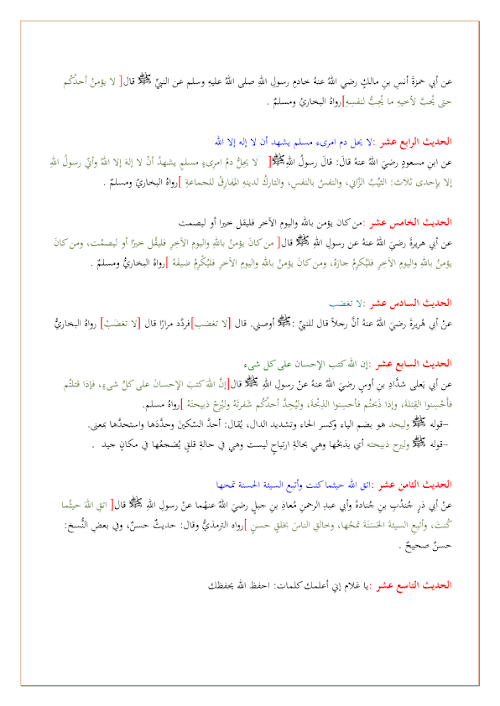 عن أبي حمزةَ أنسِ بنِ مالكٍ رضي اللهُ عنهُ خادمِ رسولِ اللهِ صلى اللهُ عليهِ وسلم عن النبيِّ ﷺ قال[ لا يؤمنُ أحدُكُم
حتى يُحبَّ لأخيهِ ما يُحبُّ لنفسِهِ]رواهُ البخاريُ ومسلمٌ .
الحديث الرابع عشر :لا يحل دم امرىء مسلم يشهد أن لا إله إلا الله
عن ابنِ مسعودٍ رضيَ اللهُ عنهُ قالَ: قالَ رسولُ اللهِﷺ[ لا يحِلُّ دمُ امرىءٍ مسلمٍ يشهدُ أنْ لا إلهَ إلا اللهُ وأنّي رسولُ اللهِ
إلا بإحدى ثلاث: الثيِّبُ الزَّاني، والنفسُ بالنفسِ، والتاركُ لدينهِ المُفارقُ للجماعةِ ]رواهُ البخاريُ ومسلمٌ .
الحديث الخامس عشر :من كان يؤمن بالله واليوم الآخر فليقل خيرا أو ليصمت
عن أبي هريرةَ رضيَ اللهُ عنهُ عن رسولِ اللهِ ﷺ قال[ من كانَ يؤمنُ باللهِ واليومِ الآخرِ فليقُل خيرًا أو ليصمُت، ومن كانَ
يؤمنُ باللهِ واليومِ الآخرِ فليُكرِمْ جارَهُ، ومن كانَ يؤمنُ باللهِ واليومِ الآخرِ فليُكْرِمْ ضيفَهُ ]رواهُ البخاريُّ ومسلمٌ .
الحديث السادس عشر :لا تغضب
عنْ أبي هُريرةَ رضيَ اللهُ عنهُ أنَّ رجلاً قال للنبيِّ :ﷺ أوصني. قال [لا تغضب]فردَّد مرارًا قال [لا تغضَبْ] رواهُ البخاريُّ
الحديث السابع عشر :إن الله كتب الإحسان على كل شيء
عن أبي يَعلى شدَّادِ بنِ أوسٍ رضيَ اللهُ عنهُ عنْ رسولِ اللهِ ﷺ قال[إنَّ اللهَ كتبَ الإحسانَ على كلِّ شيءٍ، فإذا قتلتُم
فأحْسِنوا القِتلةَ، وإذا ذَبحتُم فأحسِنوا الذِبْحةَ، وليُحِدَّ أحدُكُم شَفرتَهُ وليُرِحْ ذبيحتَهُ ]رواهُ مسلم.
–قوله ﷺ وليحد هو بضم الياء وكسر الحاء وتشديد الدال، يُقال: أحدَّ السّكينَ وحدَّدَها واستحدَّها بمعنى.
–قوله ﷺ وليرح ذبيحته أي يذبَحُها وهي بحالةِ ارتياحٍ ليست وهي في حالةِ قلقٍ يُضجعُها في مكانٍ جيد .
الحديث الثامن عشر :اتق الله حيثما كنت وأتبع السيئة الحسنة تمحها
عنْ أبي ذرٍ جُندُبِ بنِ جُنادةَ وأبي عبدِ الرحمنِ مُعاذِ بنِ جبلٍ رضيَ اللهُ عنهُما عنْ رسولِ اللهِ ﷺ قال[ اتقِ اللهَ حيثُما
كُنتَ، وأتبِعِ السيئةَ الحَسَنَةَ تمحُها، وخالقِ الناسَ بخلقٍ حسنٍ ]رواه الترمذيُّ وقال: حديثٌ حسنٌ، وفي بعضِ النُّسخِ:
حسنٌ صحيحٌ .
الحديث التاسع عشر :يا غلام إني أعلمك كلمات: احفظ الله يحفظك